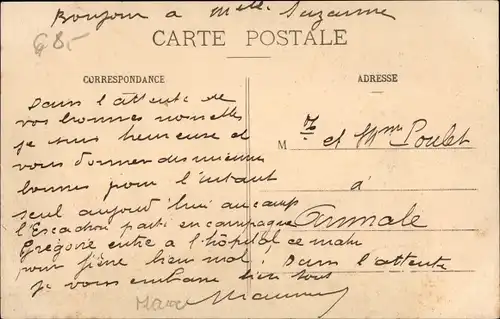 Bonjour a Melle Suzanne
68,-
CARTE POSTALE
CORRESPONDANCE
ADRESSE
Dans l'attente de
vos bonnes nouvelles
je suis heureuse de
vous donner des miennes
bonnes pour l'instant
seul aujourd'hui au camp
l'Escadron parti en campagne
Grégoire entre a l'hôpital ce matin
pour fièvre bien mal. Dans l'attente
je vous embrasse bien tout
M r et Mme Poulet
à
Aumale
Maroc